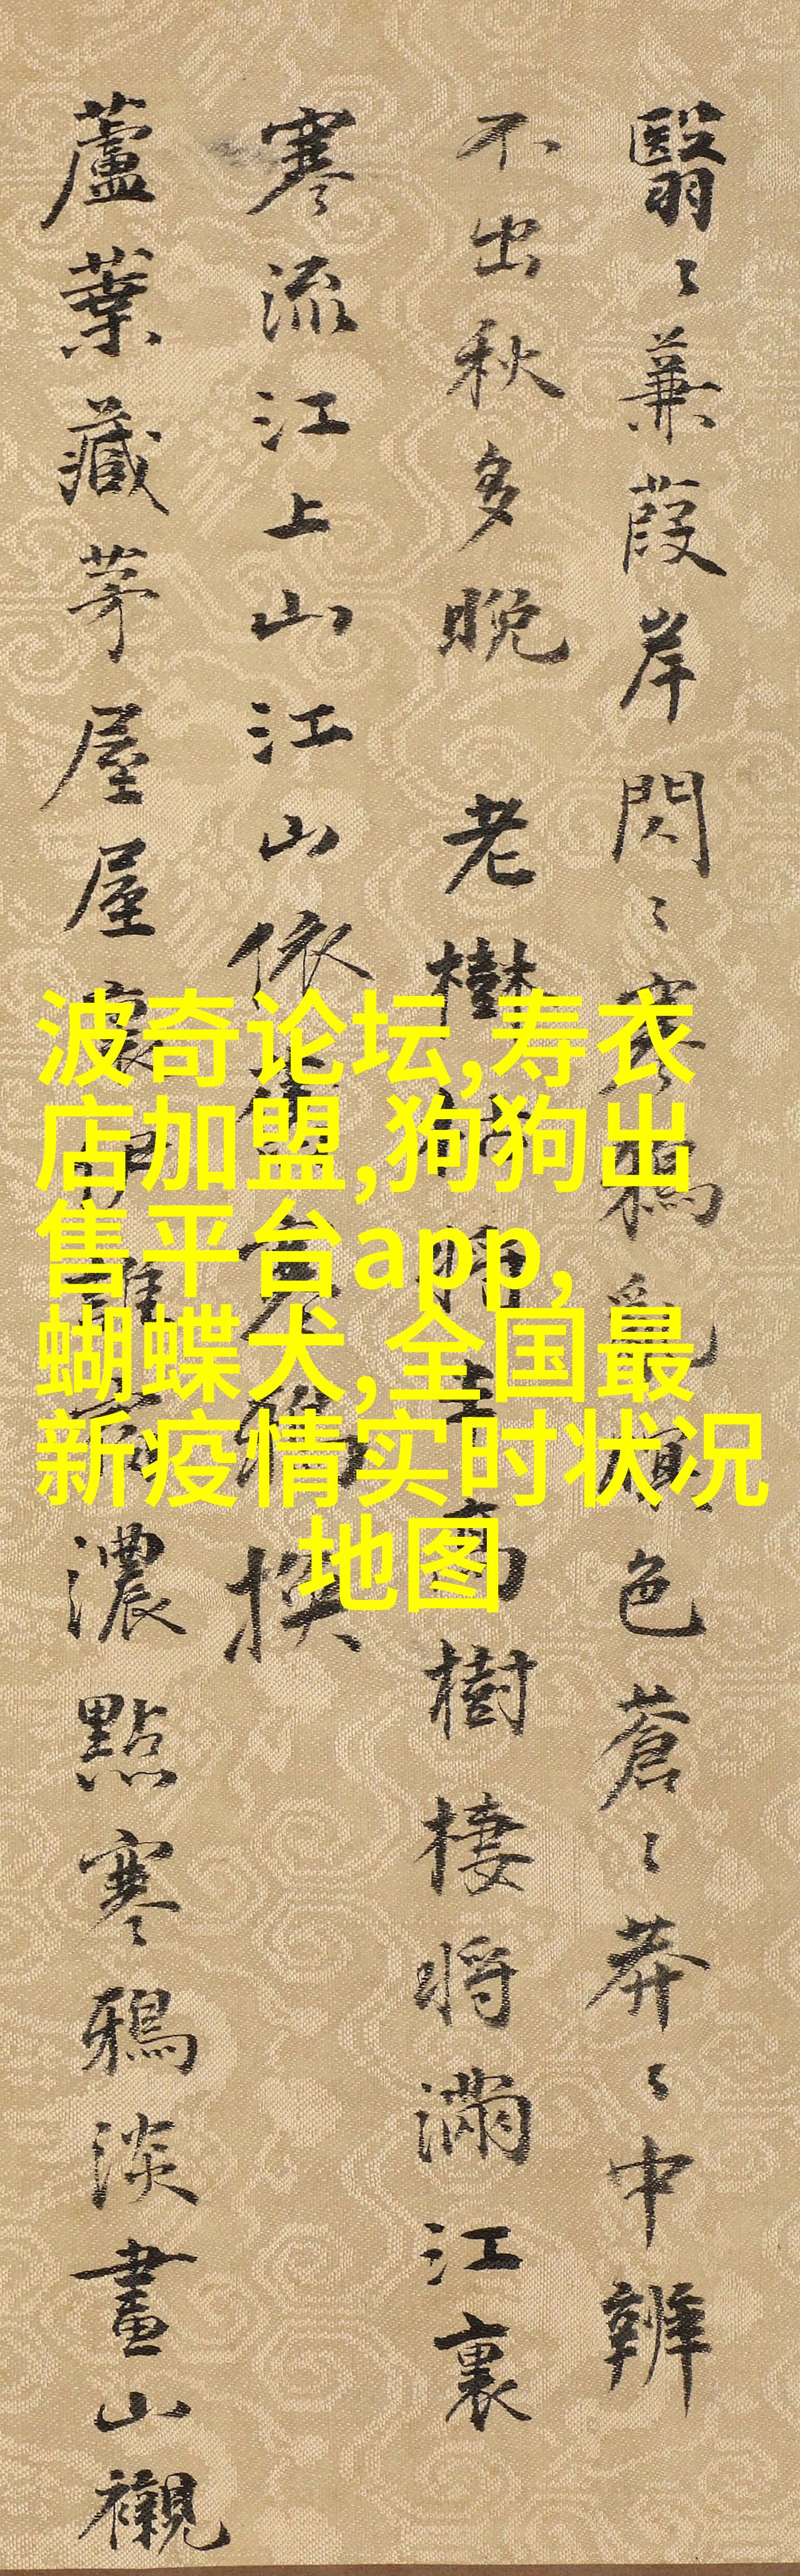 翳〻蒹葭岸閃〻寒鴉亂色蒼〻莽〻中辨
不出秋多晚 老樹將高樹棲將滿江裏
寒流江上山江山依鴉撰
蘆葉藏茅屋屋裏伊誰家濃點寒鴉淡畫山襯
波奇论坛,寿衣
店加盟,狗狗出
售平台app,
蝴蝶犬,全国最
新疫情实时状况
地图